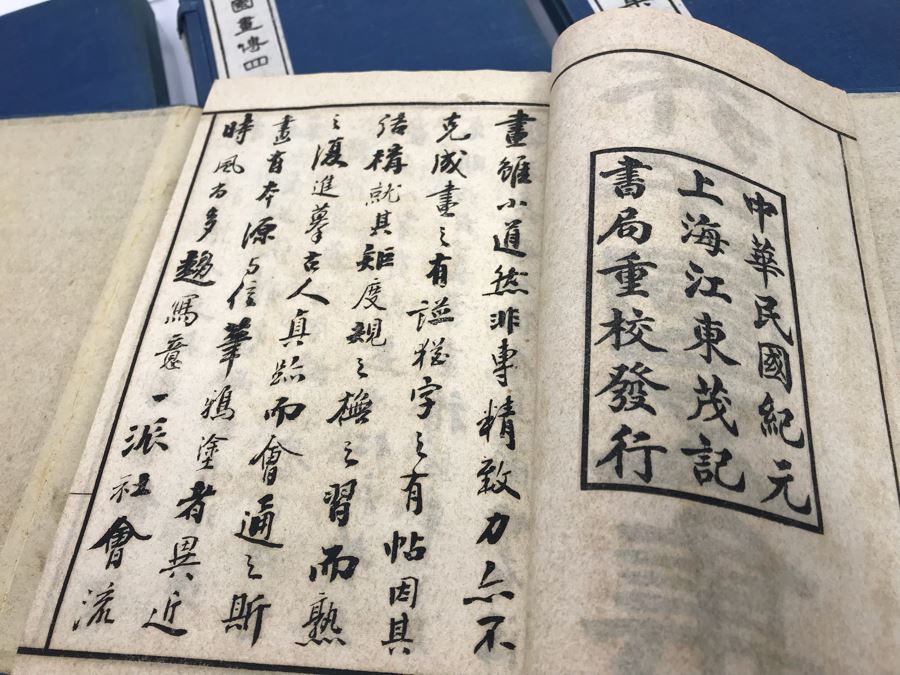 國畫傳四
中華民國紀元
上海江東茂記
書局重校發行
畫雖小道然非專精致力亦不
克成畫之有譜猶字之有帖因其
結構就其矩度規之橅之習而熟
之復進摹古人真跡而會通之斯
畫有本源与信筆鴉塗者異近
時風尚多趨寫意一派社會流